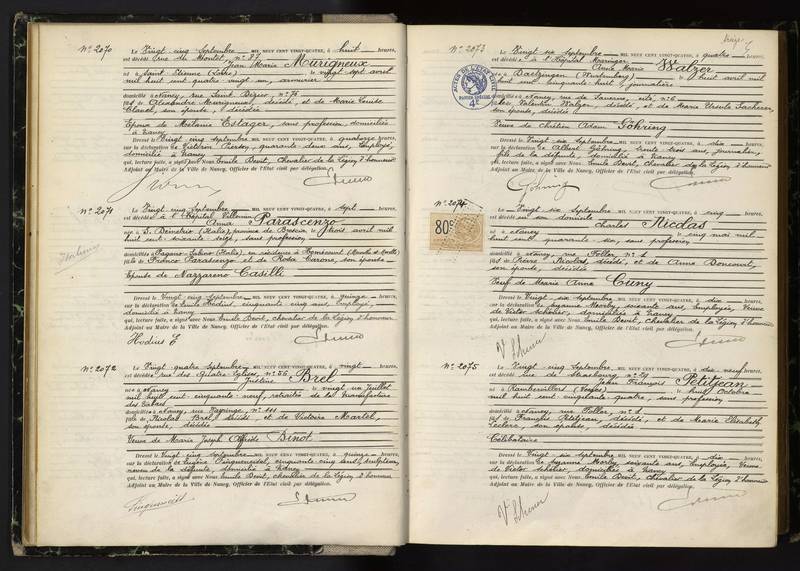 N° 2070
Le Vingt cinq Septembre MIL NEUF CENT VINGT-QUATRE, à huit heures,
est décédé rue de Montet, n° 37
Jean Marie Murigneux
né à Saint Etienne (Loire) le vingt sept avril
mil huit cent quatre vingt un, armurier
domicilié à Nancy, rue Saint Bizier, n° 76
fils de Murigneux, décédé, et de Marie Louise
son épouse, décédée
Epoux de Mélanie Estager, sans profession, domiciliée
à Nancy
Dressé le Vingt cinq Septembre MIL NEUF CENT VINGT-QUATRE, à quatorze heures,
sur la déclaration de quarante deux ans, Employé,
domicilié à Nancy
qui, lecture faite, a signé avec Nous Emile Chevalier de la Légion d'honneur
Adjoint au Maire de la Ville de Nancy, Officier de l'Etat civil par délégation.
N° 2071
Italienne
Le Vingt cinq Septembre MIL NEUF CENT VINGT-QUATRE, à sept heures,
est décédée à l'Hôpital Villemin
Parascenzo
née à S. Demetrio (Italie), province de le trois avril mil
huit cent soixante seize, sans profession
domiciliée à (Italie), en résidence à (Meurthe et Moselle)
fille de Franco Parascenzo et de Rosa son épouse
Epouse de Nazzareno Casilli
Dressé le Vingt cinq Septembre MIL NEUF CENT VINGT-QUATRE, à quinze heures,
sur la déclaration de Emile Hodius, cinquante cinq ans, Employé,
domicilié à Nancy
qui, lecture faite, a signé avec Nous Emile Chevalier de la Légion d'honneur
Adjoint au Maire de la Ville de Nancy, Officier de l'Etat civil par délégation.
Hodius E
N° 2072
Le Vingt quatre Septembre MIL NEUF CENT VINGT-QUATRE, à vingt heures,
est décédée rue des Quatre Eglises, n° 55
Justine Brel
née à Nancy le vingt un Juillet
mil huit cent cinquante neuf, retraitée de la Manufacture
des tabacs
domiciliée à Nancy, rue n° 111
fille de Nicolas Brel décédé et de Victoire Martel,
son épouse, décédée
Veuve de Marie Joseph Alfrède Binot
Dressé le Vingt cinq Septembre MIL NEUF CENT VINGT-QUATRE, à quinze heures,
sur la déclaration de Eugène cinquante cinq ans, sculpteur,
neveu de la défunte, domicilié à Nancy
qui, lecture faite, a signé avec Nous Emile Chevalier de la Légion d'honneur
Adjoint au Maire de la Ville de Nancy, Officier de l'Etat civil par délégation.
N° 2073
Le Vingt six Septembre MIL NEUF CENT VINGT-QUATRE, à quatre heures,
est décédée à l'Hôpital
Anne Marie Walzer
née à (Wurtemberg) le huit avril mil
huit cent cinquante huit, journalière
domiciliée à Nancy, rue de n° 6
fille de Valentin Walzer, décédé, et de Marie Ursule
son épouse, décédée
Veuve de Chrétien Adam Göhring
Dressé le Vingt six Septembre MIL NEUF CENT VINGT-QUATRE, à dix heures,
sur la déclaration de Albert Göhring, trente trois ans, journalier,
fils de la défunte, domicilié à Nancy
qui, lecture faite, a signé avec Nous Emile Chevalier de la Légion d'honneur
Adjoint au Maire de la Ville de Nancy, Officier de l'Etat civil par délégation.
Göhring
N° 2074
80c
Le Vingt six Septembre MIL NEUF CENT VINGT-QUATRE, à cinq heures,
est décédé en son domicile
Charles Nicolas
né à Nancy le cinq mai mil
huit cent quarante six, sans profession
domicilié à Nancy, rue Foller, n° 1
fils de Pierre Nicolas, décédé, et de Anne Boncourt,
son épouse, décédée
Veuf de Marie Anne Cuny
Dressé le Vingt six Septembre MIL NEUF CENT VINGT-QUATRE, à dix heures,
sur la déclaration de soixante ans, Employée, Veuve
de Victor domiciliée à Nancy
qui, lecture faite, a signé avec Nous Emile Chevalier de la Légion d'honneur
Adjoint au Maire de la Ville de Nancy, Officier de l'Etat civil par délégation.
N° 2075
Le Vingt cinq Septembre MIL NEUF CENT VINGT-QUATRE, à dix neuf heures,
est décédé rue de Strasbourg, n° 29
Jean François Petitjean
né à Rambervillers (Vosges) le huit Octobre
mil huit cent cinquante quatre, sans profession
domicilié à Nancy, rue Foller, n° 1
fils de François Petitjean, décédé, et de Marie Elisabeth
Leclerc, son épouse, décédée
Célibataire
Dressé le Vingt six Septembre MIL NEUF CENT VINGT-QUATRE, à dix heures,
sur la déclaration de soixante ans, Employée, Veuve
de Victor domiciliée à Nancy
qui, lecture faite, a signé avec Nous Emile Chevalier de la Légion d'honneur
Adjoint au Maire de la Ville de Nancy, Officier de l'Etat civil par délégation.